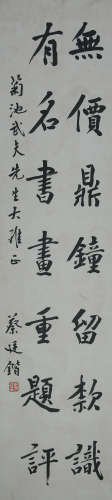 無價鼎鐘留款識
有名書畫重題評
菊池武夫先生大雅正
蔡廷鍇